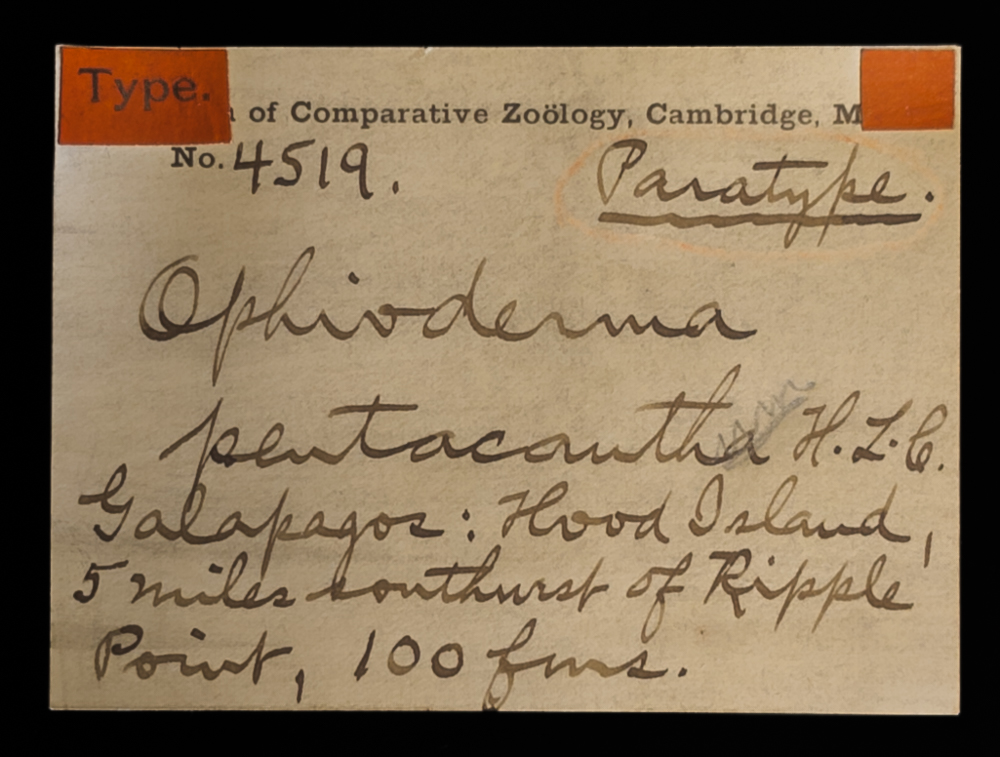 Type.
of Comparative Zoölogy, Cambridge, M
No. 4519.
Paratype.
Ophioderma
pentacantha H.L.C.
Galapagos: Hood Island,
5 miles southwest of Ripple
Point, 100 fms.